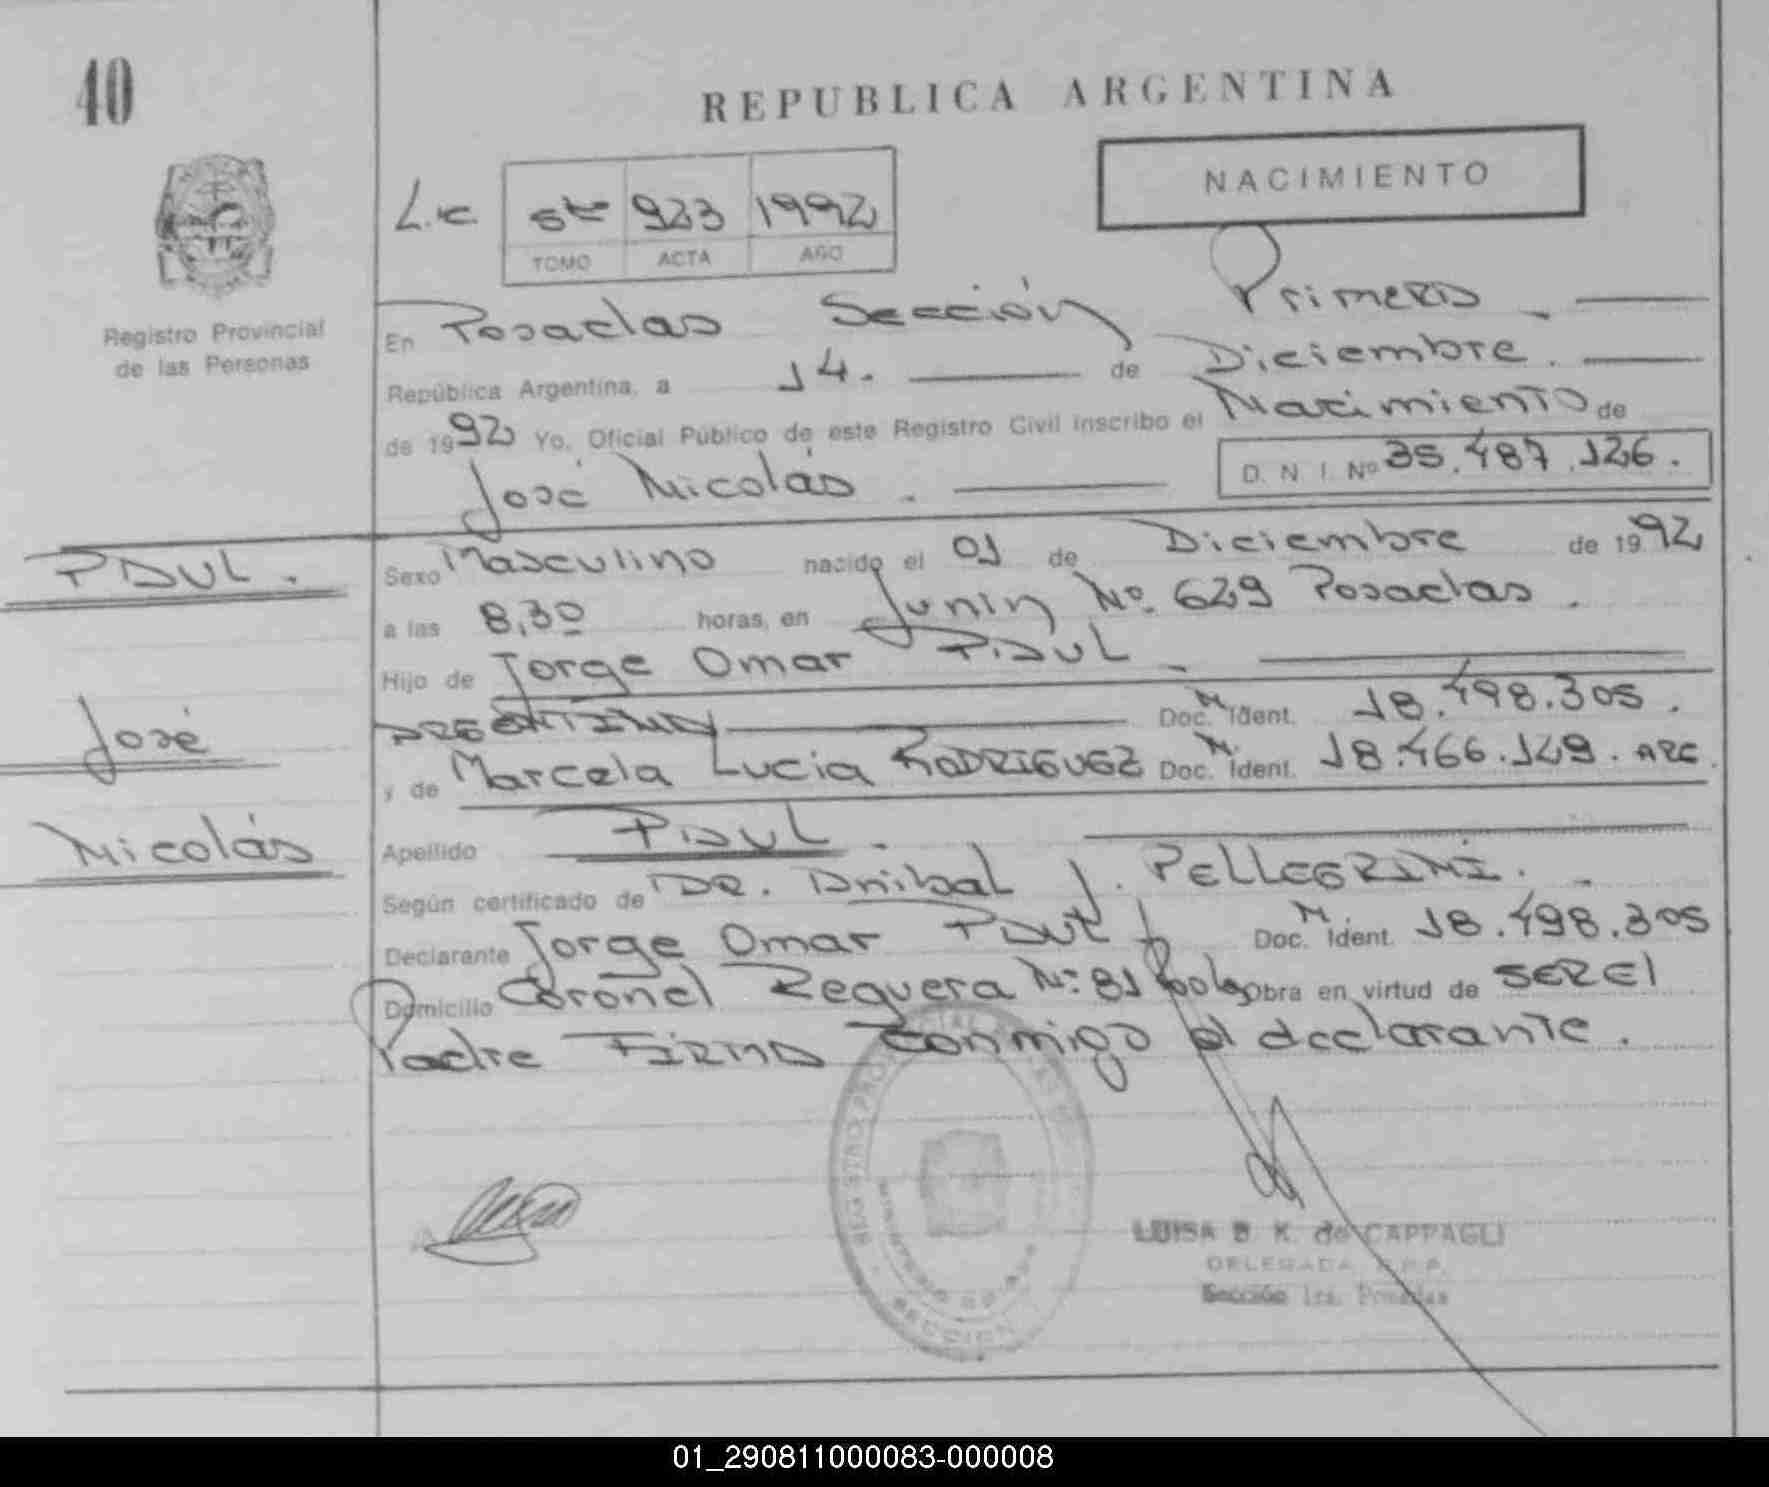 40
REPUBLICA ARGENTINA
NACIMIENTO
L.c. 6to 923 1992
TOMO ACTA AÑO
Registro Provincial
de las Personas
En Posadas Sección Primera
República Argentina, a 14. de Diciembre.
de 1992 Yo, Oficial Público de este Registro Civil inscribo el Nacimiento de
José Nicolás . D. N. I. Nº 35.487.126.
PAUL.
José
Nicolás
Sexo Masculino nacido el 01 de Diciembre de 1992
a las 8,30 horas, en Junin Nº. 629 Posadas.
Hijo de Jorge Omar PAUL
ARGENTINO Doc. M. Ident. 18.498.305.
y de Marcela Lucia RODRIGUEZ Doc. M. Ident. 18.466.149. ARG.
Apellido PAUL.
Según certificado de DR. Anibal J. PELLEGRINI.
Declarante Jorge Omar PAUL Doc. M. Ident. 18.498.305
Domicilio Coronel Reguera Nº: 81 Obra en virtud de SER El
Padre FIRMA Conmigo el declarante.
LUISA B. K. de CAPPAGLI
DELEGADA R.P.P.
Sección 1ra. Posadas
01_290811000083-000008